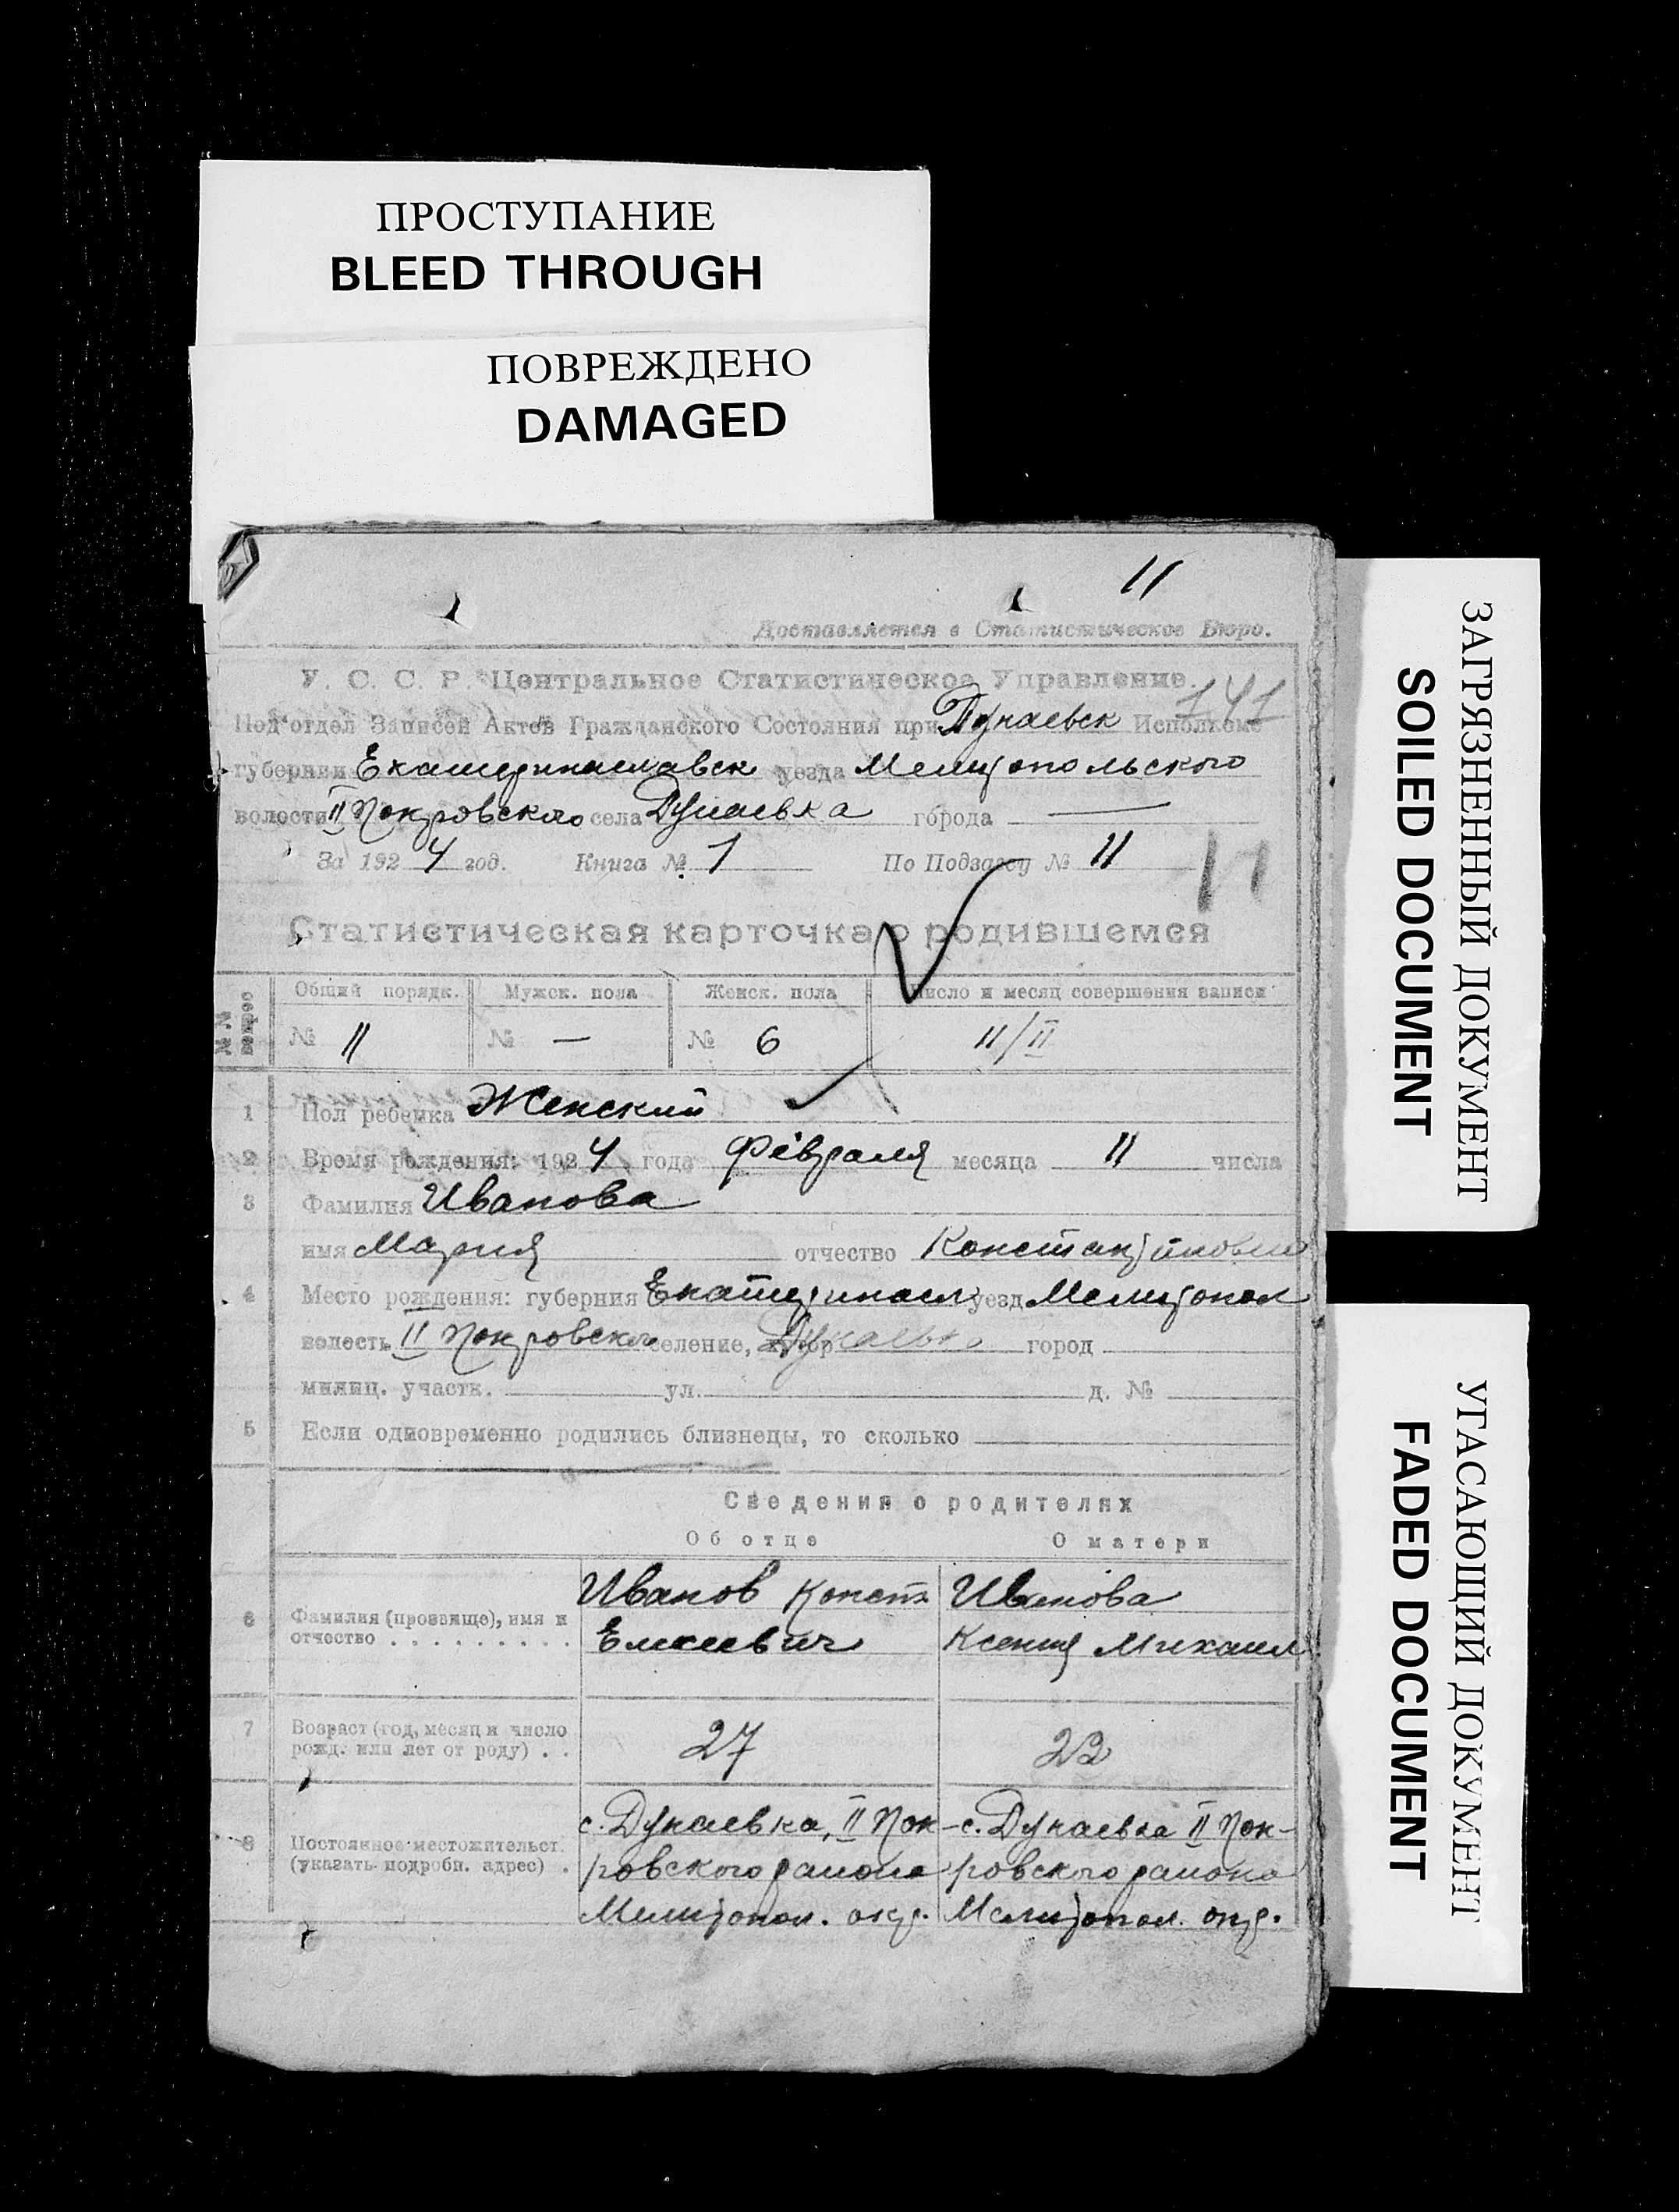 ПРОСТУПАНИЕ
BLEED THROUGH
ПОВРЕЖДЕНО
DAMAGED
11
Доставляется в Статистическое Бюро.
У. С. С. Р. Центральное Статистическое Управление.
141
Под'отдел Записей Актов Гражданского Состояния при Дунаевск Исполкоме
губернии Екатеринославск уезда Мелитопольского
волости II Покровского села Дунаевка города —
За 1924 год. Книга № 1 По Подзагсу № 11
11
Статистическая карточка о родившемся
№№ вопросов Общий порядк. Мужск. пола Женск. пола Число и месяц совершения записи
№ 11 № — № 6 11/II
1 Пол ребенка Женский
2 Время рождения: 1924 года Февраля месяца 11 числа
3 Фамилия Иванова
имя Мария отчество Константиновна
4 Место рождения: губерния Екатериносл уезд Мелитопол
волость II Покровско селение, хутор Дунаевка город
милиц. участк. ул. д. №
5 Если одновременно родились близнецы, то сколько
Сведения о родителях
Об отце О матери
6 Фамилия (прозвище), имя и отчество Иванов Конст Иванова
Ксения Михаил
7 Возраст (год, месяц и число рожд. или лет от роду) 27 23
8 Постоянное местожительст. (указать подробн. адрес) с. Дунаевка, II Пок- с. Дунаевка II Пок-
ровского района ровского района
Мелитопол. окр. Мелитопол. окр.
ЗАГРЯЗНЕННЫЙ ДОКУМЕНТ
SOILED DOCUMENT
УГАСАЮЩИЙ ДОКУМЕНТ
FADED DOCUMENT